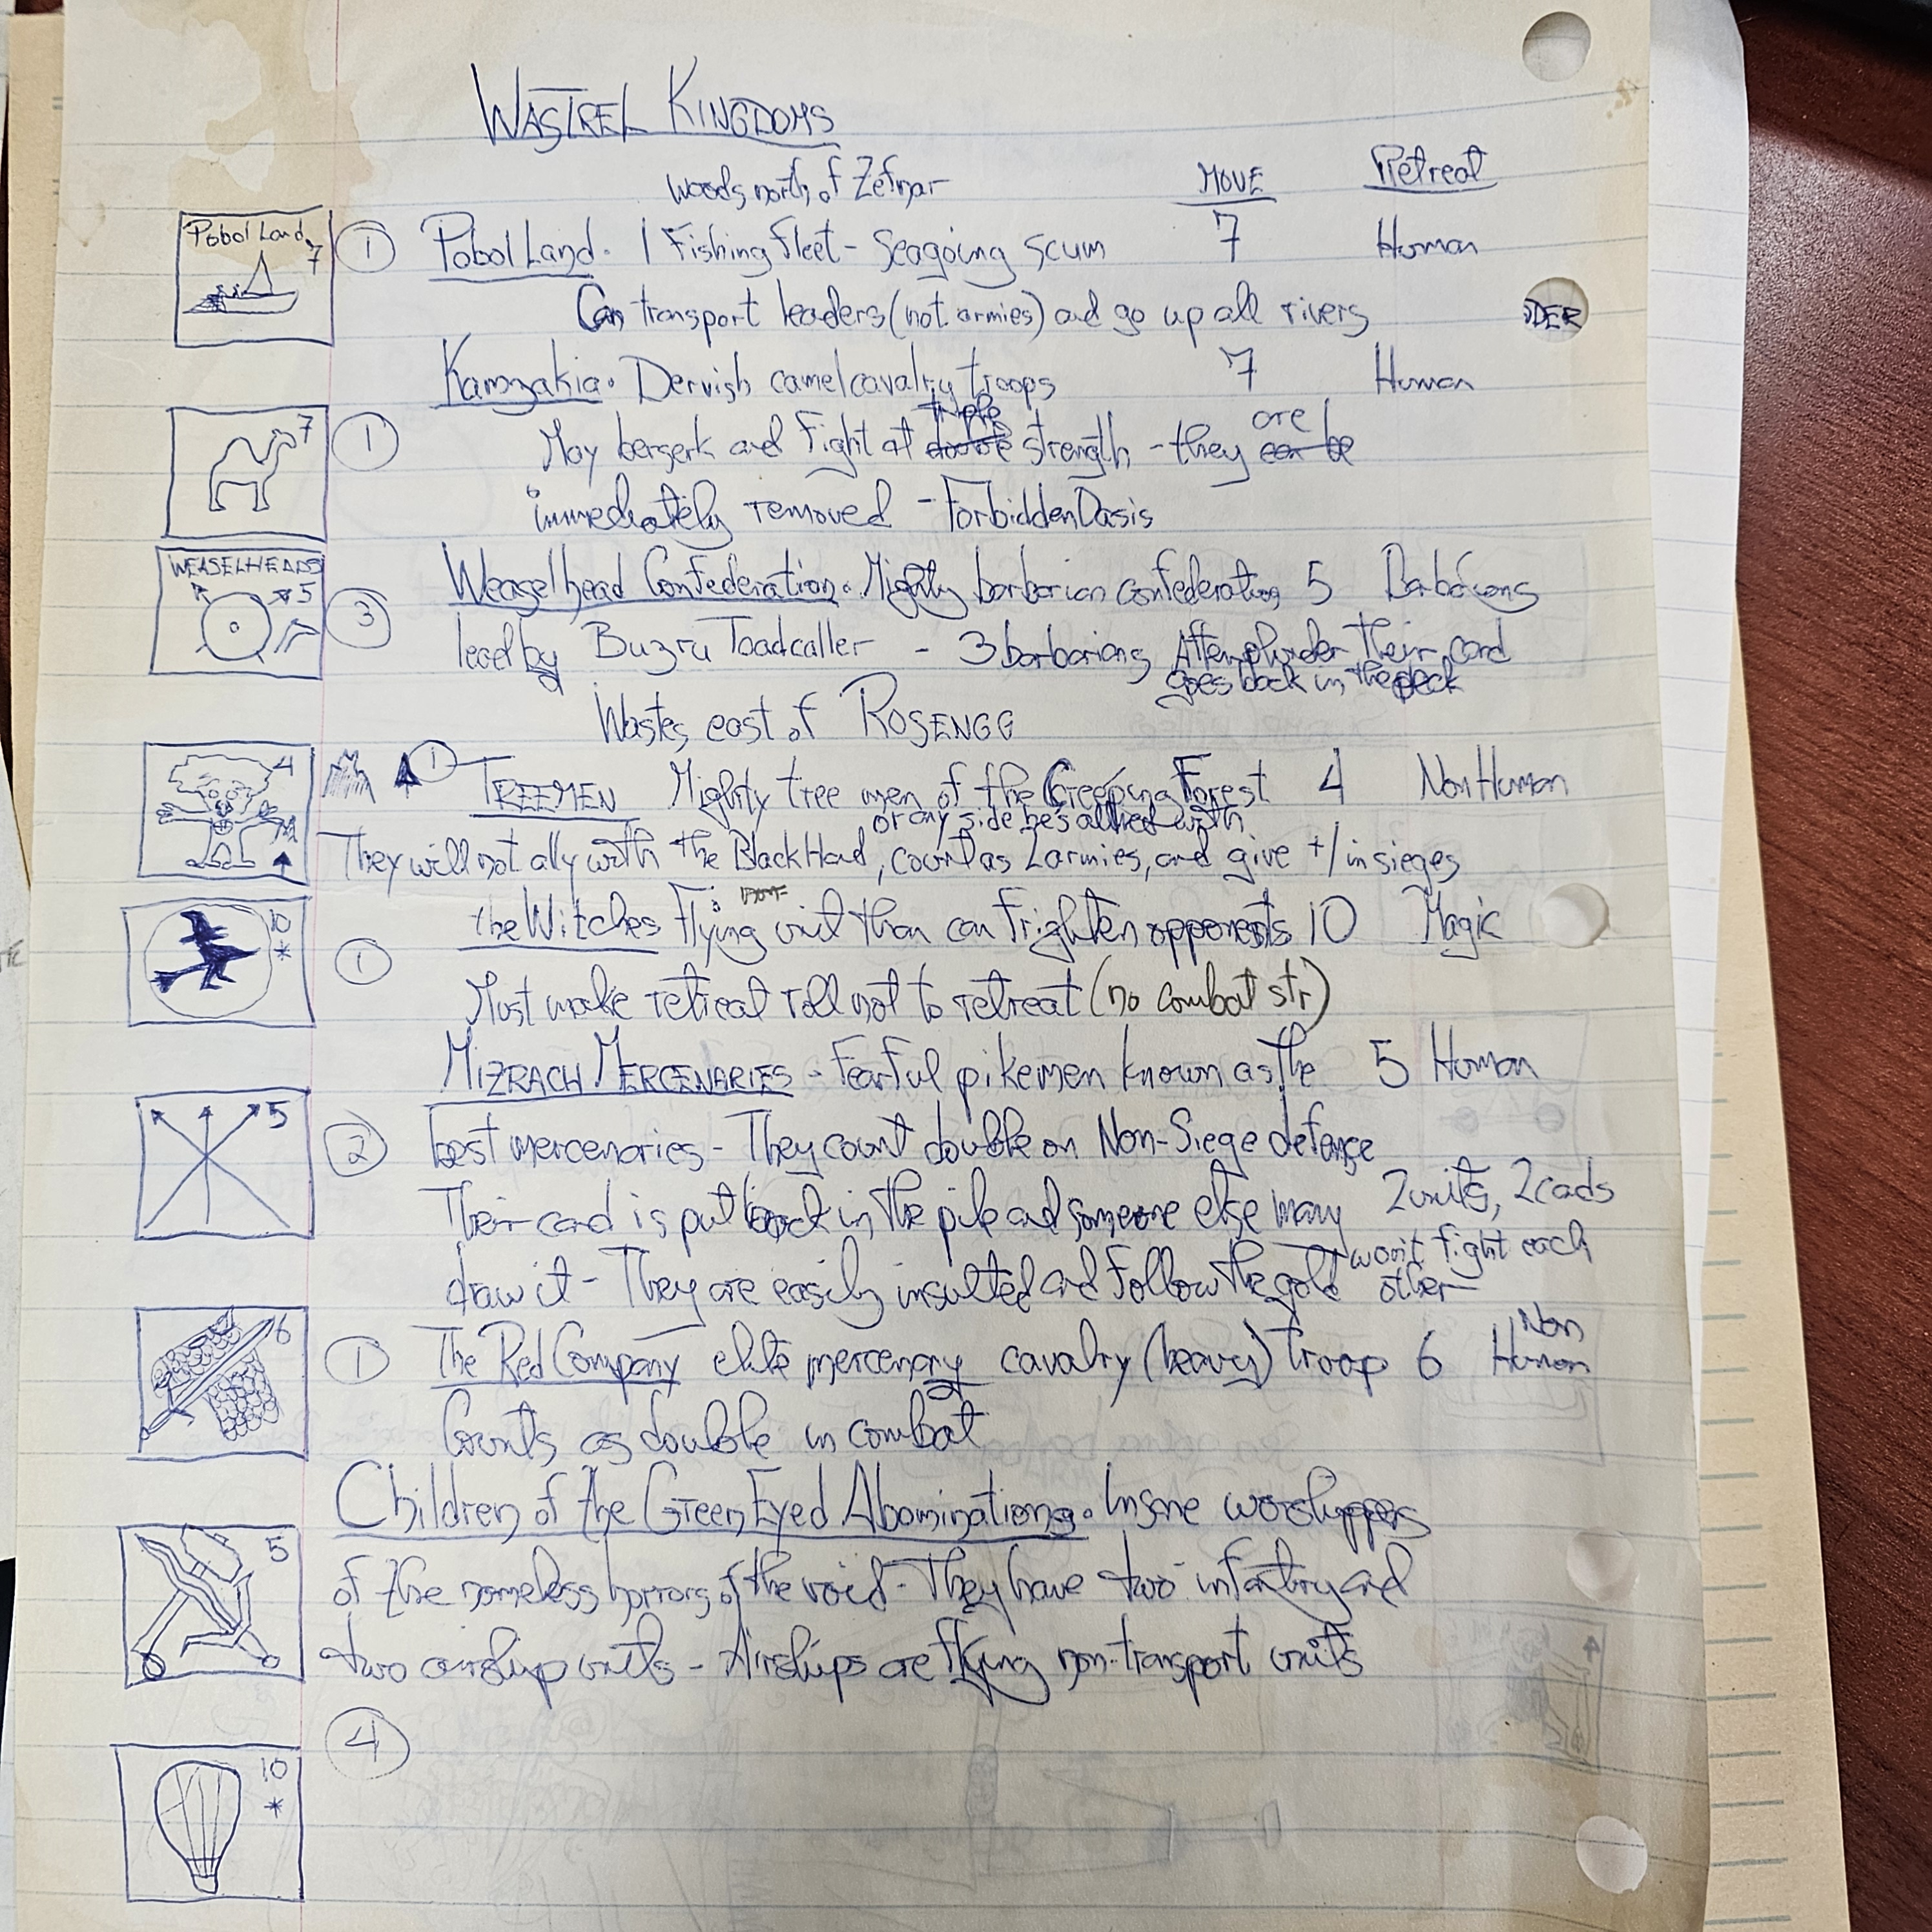 WASTREL KINGDOMS
Woods north of Zefnar
MOVE Retreat
Pobol Land 7
① Pobol Land. 1 Fishing fleet - Seagoing scum 7 Human
Can transport leaders (not armies) and go up all rivers
DER
Kamzakia. Dervish camel cavalry troops 7 Human
7 ① May berserk and Fight at double triple strength - they can be are
immediately removed - Forbidden Oasis
WEASELHEADS 5
③ Weaselhead Confederation. Mighty barbarian confederation 5 Barbarians
lead by Buzru Toadcaller - 3 barbarians After plunder their card
goes back in the deck
Wastes east of ROSENGG
4 ① TREEMEN Mighty tree men of the Creeping Forest 4 Non Human
or any side he's allied with
They will not ally with the Black Hand, count as 2 armies, and give +1 in sieges
10 * ① the Witches Flying unit than can frighten opponents 10 Magic
Must make retreat roll not to retreat (no combat str)
MIZRACH MERCENARIES - Fearful pikemen known as the 5 Human
5 ② best mercenaries - They count double on Non-Siege defense
Their card is put back in the pile and someone else many 2 units, 2 cads
draw it - They are easily insulted and follow the gold or won't fight each other
6 ① The Red Company elite mercenary cavalry (heavy) troop 6 Non Human
Counts as double in combat
Children of the Green Eyed Abominations. Insane worshippers
5 of the nameless horrors of the void - They have two infantry and
two airship units - Airships are flying non-transport units
④
10 *